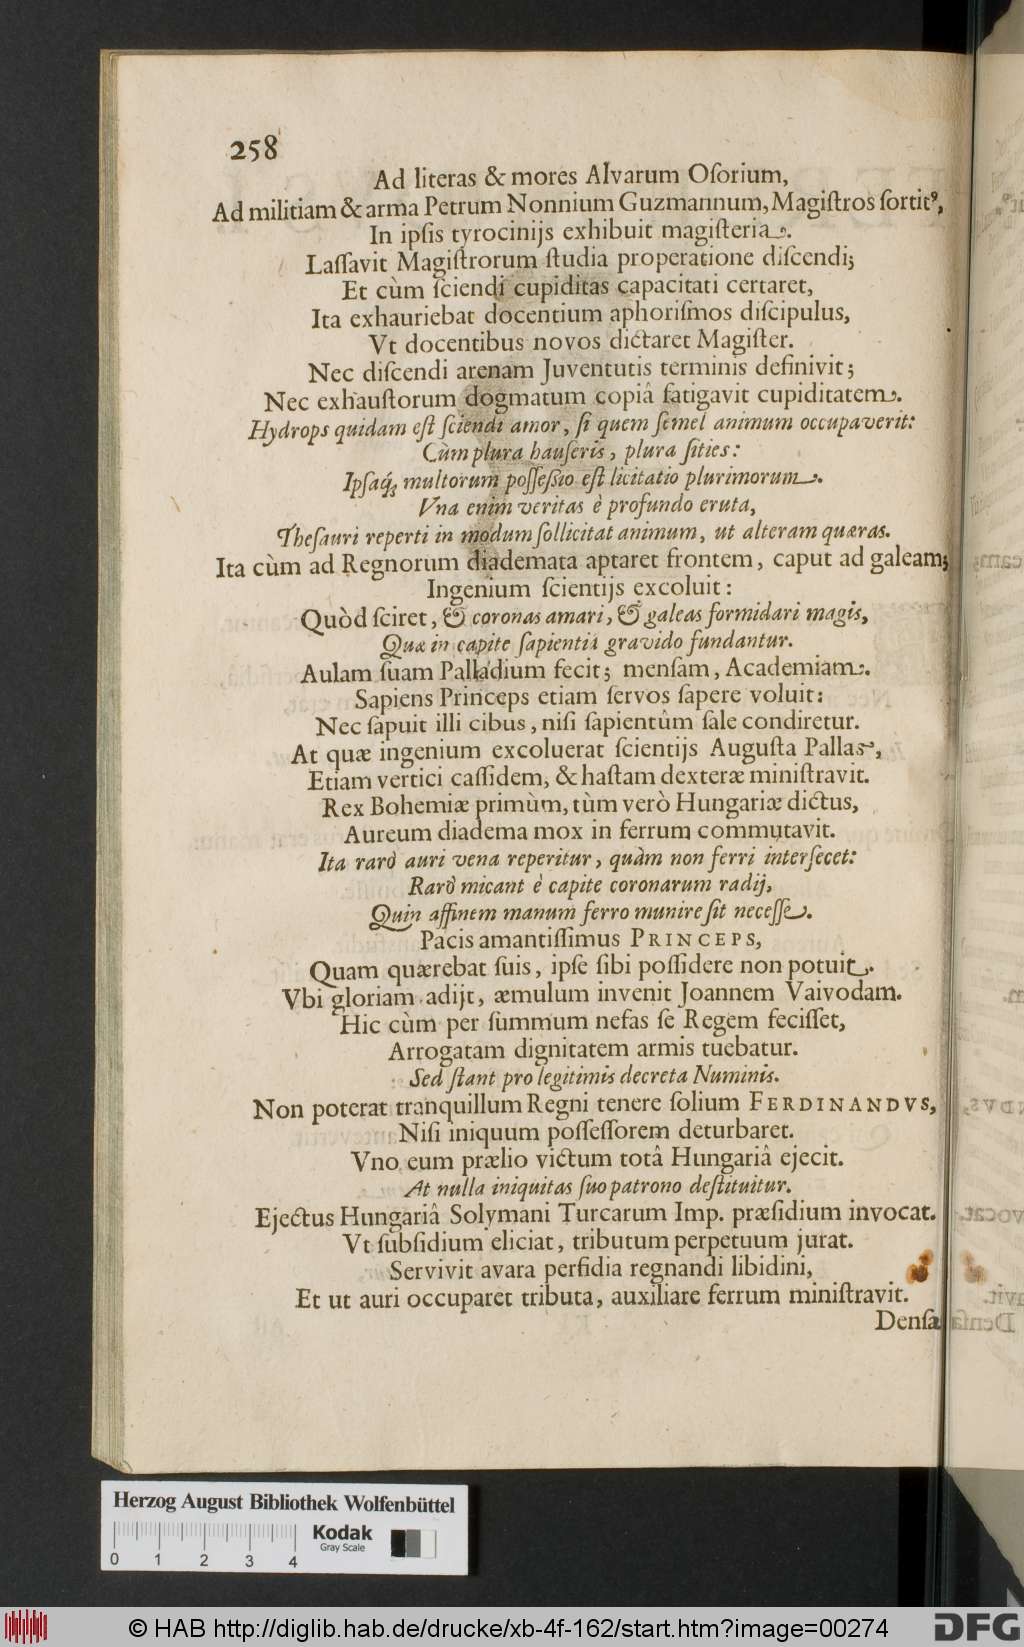 258
Ad literas & mores Alvarum Oſorium,
Ad militiam & arma Petrum Nonnium Guzmannum, Magiſtros ſortitꝰ,
In ipſis tyrocinijs exhibuit magiſteria.
Laſſavit Magiſtrorum ſtudia properatione diſcendi;
Et cùm ſciendi cupiditas capacitati certaret,
Ita exhauriebat docentium aphoriſmos diſcipulus,
Vt docentibus novos dictaret Magiſter.
Nec diſcendi arenam Juventutis terminis definivit;
Nec exhauſtorum dogmatum copiâ fatigavit cupiditatem.
Hydrops quidam eſt ſciendi amor, ſi quem ſemel animum occupaverit:
Cùm plura hauſeris, plura ſities:
Ipſaq́; multorum poſſeſsio eſt licitatio plurimorum.
Vna enim veritas è profundo eruta,
Theſauri reperti in modum ſollicitat animum, ut alteram quæras.
Ita cùm ad Regnorum diademata aptaret frontem, caput ad galeam;
Ingenium ſcientijs excoluit:
Quòd ſciret, & coronas amari, & galeas formidari magis,
Quæ in capite ſapientiâ gravido fundantur.
Aulam ſuam Palladium fecit; menſam, Academiam.
Sapiens Princeps etiam ſervos ſapere voluit:
Nec ſapuit illi cibus, niſi ſapientûm ſale condiretur.
At quæ ingenium excoluerat ſcientijs Auguſta Pallas,
Etiam vertici caſſidem, & haſtam dexteræ miniſtravit.
Rex Bohemiæ primùm, tùm verò Hungariæ dictus,
Aureum diadema mox in ferrum commutavit.
Ita rarò auri vena reperitur, quàm non ferri interſecet:
Rarò micant è capite coronarum radij,
Quin affinem manum ferro munire ſit neceſſe.
Pacis amantiſſimus PRINCEPS,
Quam quærebat ſuis, ipſe ſibi poſſidere non potuit.
Vbi gloriam adijt, æmulum invenit Joannem Vaivodam.
Hic cùm per ſummum nefas ſe Regem feciſſet,
Arrogatam dignitatem armis tuebatur.
Sed ſtant pro legitimis decreta Numinis.
Non poterat tranquillum Regni tenere ſolium FERDINANDVS,
Niſi iniquum poſſeſſorem deturbaret.
Vno eum prælio victum totâ Hungariâ ejecit.
At nulla iniquitas ſuo patrono deſtituitur.
Ejectus Hungariâ Solymani Turcarum Imp. præſidium invocat.
Vt ſubſidium eliciat, tributum perpetuum jurat.
Servivit avara perfidia regnandi libidini,
Et ut auri occuparet tributa, auxiliare ferrum miniſtravit.
Denſa
Herzog August Bibliothek Wolfenbüttel
Kodak
Gray Scale
0 1 2 3 4
© HAB http://diglib.hab.de/drucke/xb-4f-162/start.htm?image=00274
DFG